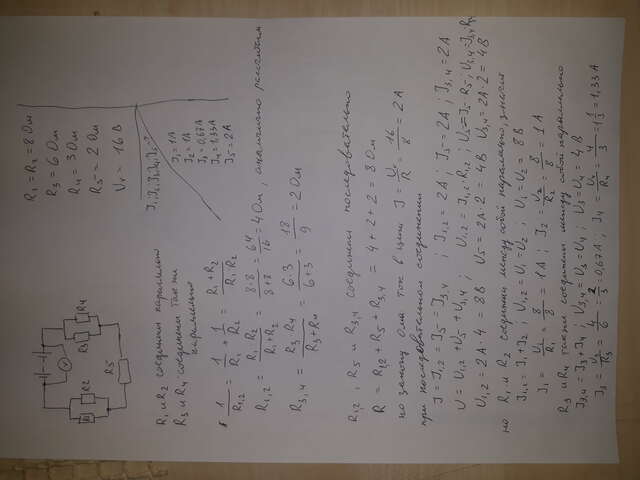 R2
R1
R3
R4
R5
V
R₁ = R₂ = 8 Ом
R₃ = 6 Ом
R₄ = 3 Ом
R₅ = 2 Ом
Uᵥ = 16 В
I₁, I₂, I₃, I₄, I₅ = ?
I₁ = 1A
I₂ = 1A
I₃ = 0,67A
I₄ = 1,33A
I₅ = 2A
R₁ и R₂ соединены параллельно
R₃ и R₄ соединены так же
параллельно
1/R₁,₂ = 1/R₁ + 1/R₂ = R₁ + R₂ / R₁·R₂
R₁,₂ = R₁·R₂ / R₁ + R₂ = 8·8 / 8+8 = 64/16 = 4 Ом, аналогично рассчитаем
R₃,₄ = R₃·R₄ / R₃+R₄ = 6·3 / 6+3 = 18/9 = 2 Ом
R₁,₂, R₅ и R₃,₄ соединены последовательно
R = R₁,₂ + R₅ + R₃,₄ = 4 + 2 + 2 = 8 Ом
по закону Ома ток в цепи I = U/R = 16/8 = 2A
при последовательном соединении
I = I₁,₂ = I₅ = I₃,₄ ; I₁,₂ = 2A ; I₅ = 2A ; I₃,₄ = 2A
U = U₁,₂ + U₅ + U₃,₄ ; U₁,₂ = I₁,₂·R₁,₂ ; U₅ = I₅·R₅ ; U₃,₄ = I₃,₄·R₃,₄
U₁,₂ = 2A·4 = 8В U₅ = 2A·2 = 4В U₃,₄ = 2A·2 = 4В
но R₁ и R₂ соединены между собой параллельно, значит
I₁,₂ = I₁ + I₂ ; U₁,₂ = U₁ = U₂ , U₁ = U₂ = 8 В
I₁ = U₁/R₁ = 8/8 = 1A ; I₂ = U₂/R₂ = 8/8 = 1A
R₃ и R₄ также соединены между собой параллельно
I₃,₄ = I₃ + I₄ ; U₃,₄ = U₃ = U₄ ; U₃ = U₄ = 4 В
I₃ = U₃/R₃ = 4/6 = 2/3 = 0,67A , I₄ = U₄/R₄ = 4/3 = 1 1/3 = 1,33A